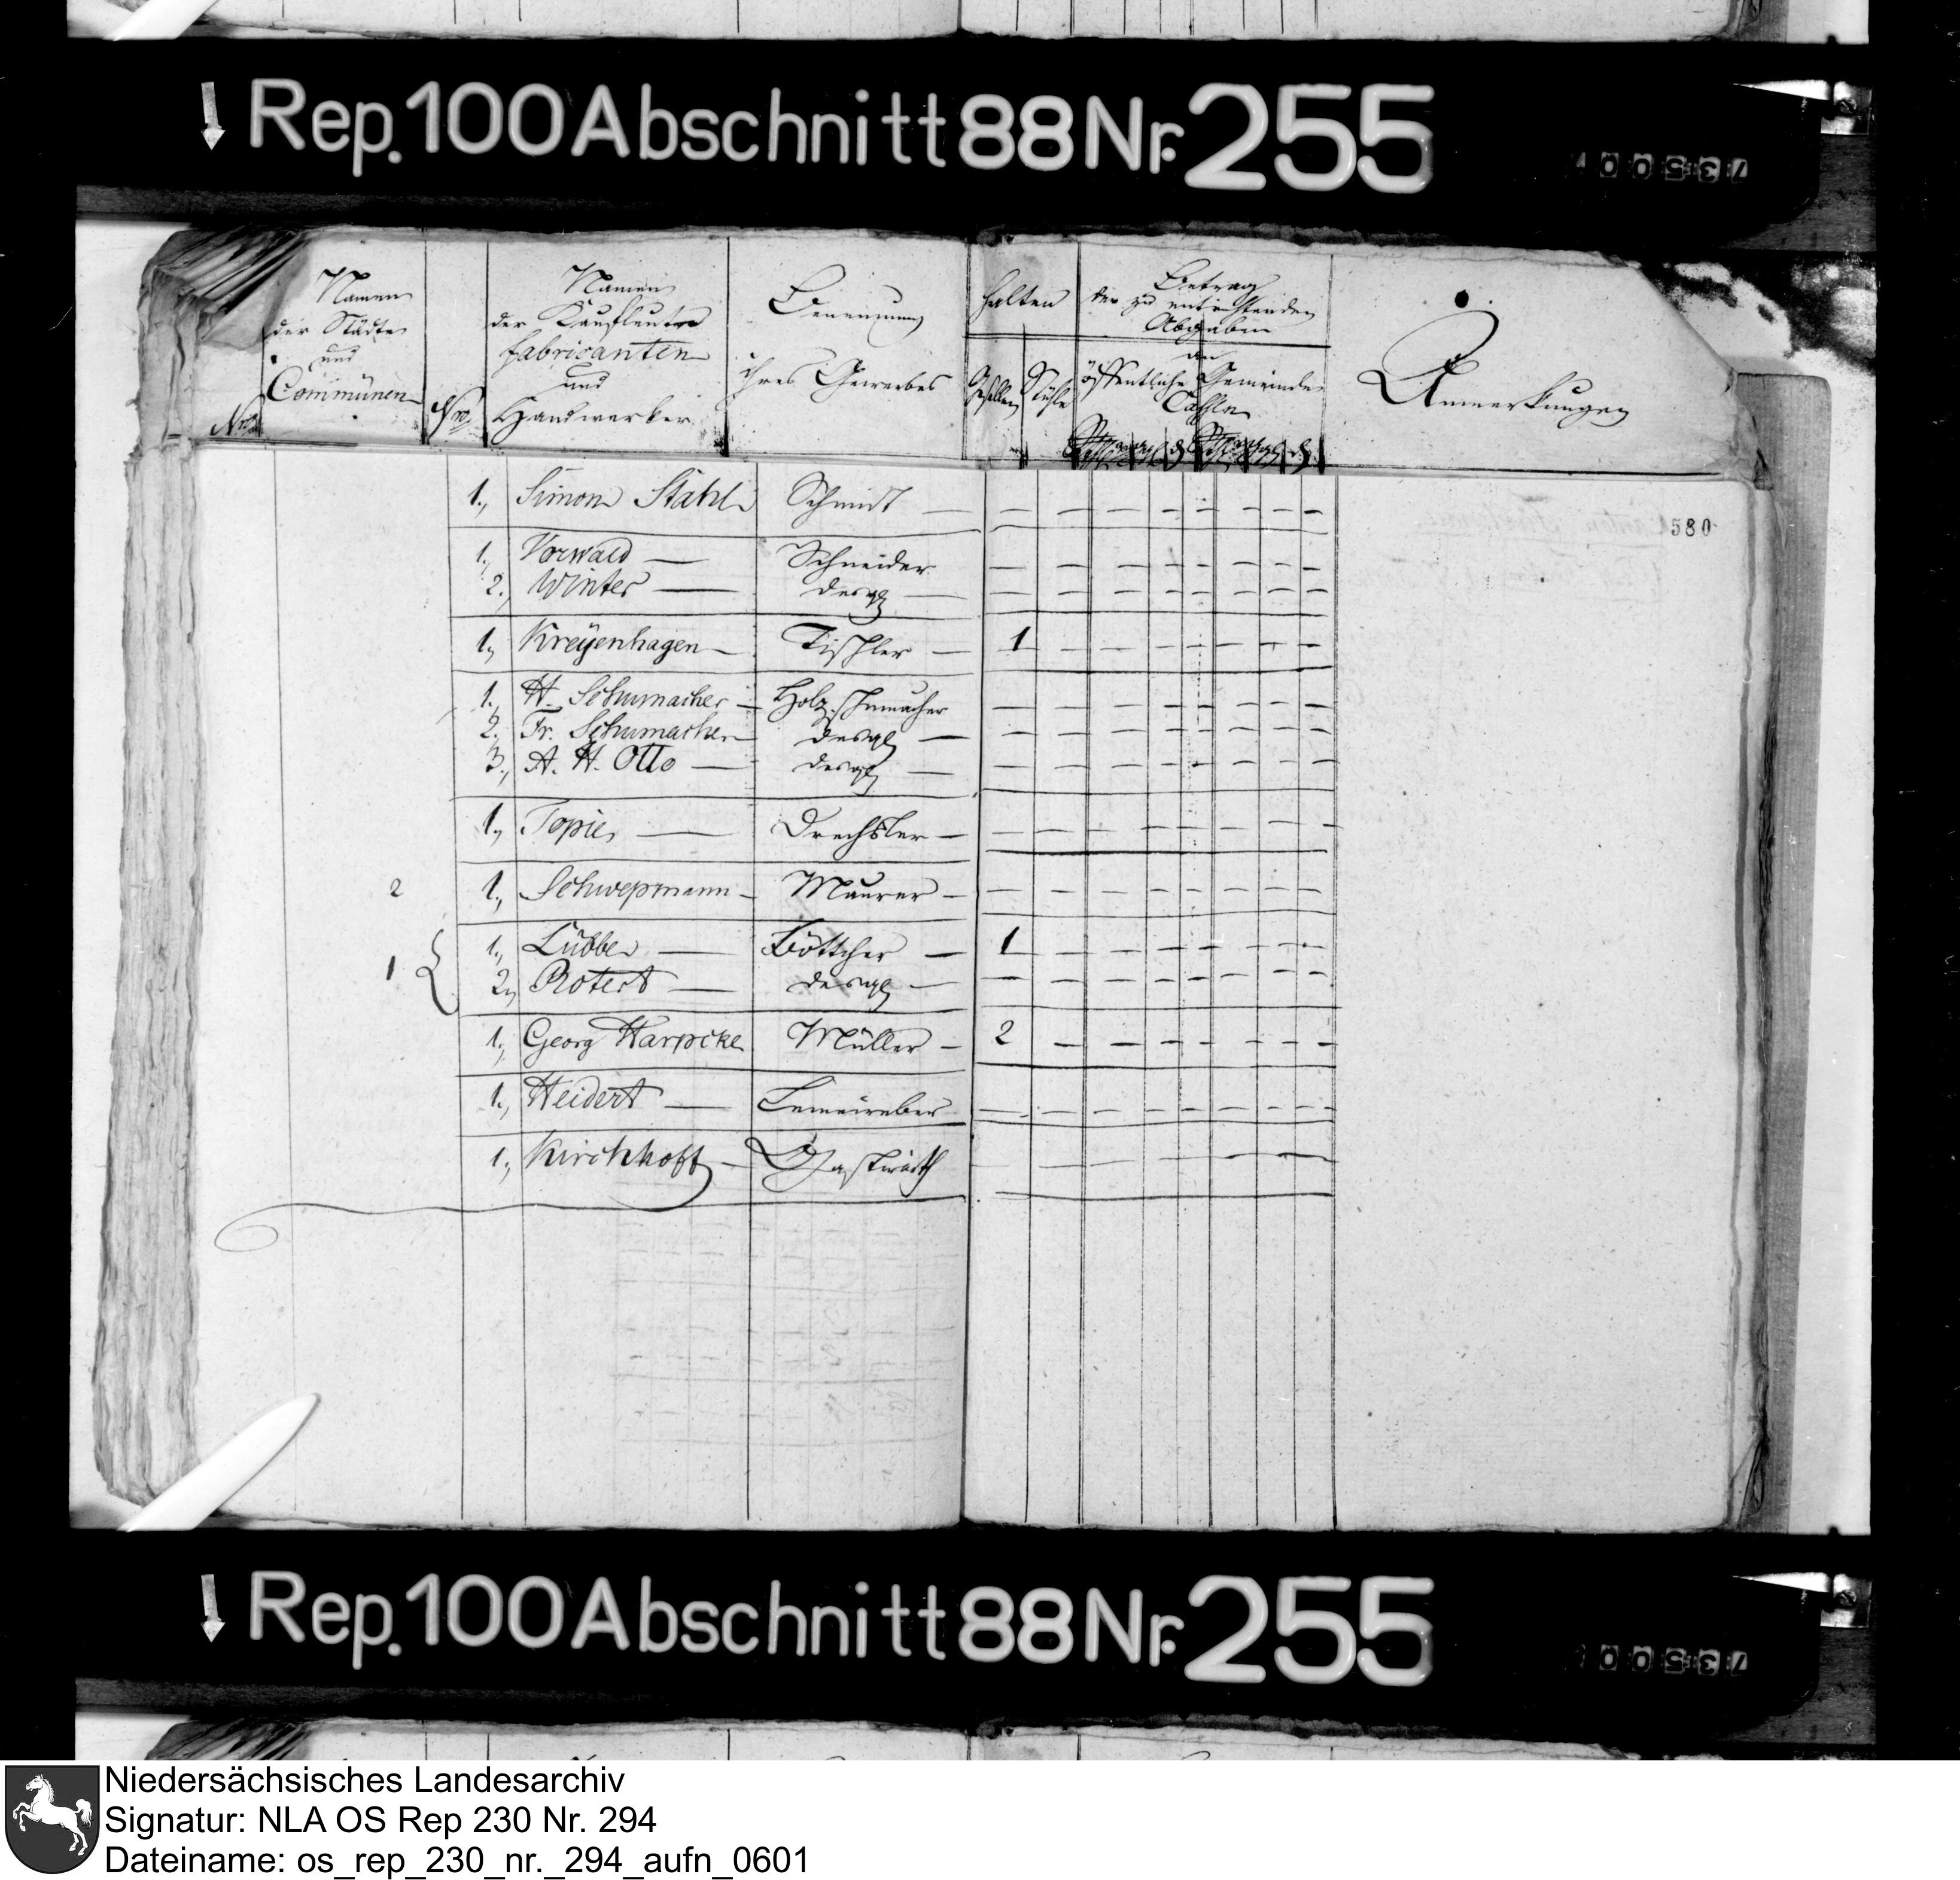 Rep. 100 Abschnitt 88 Nr. 255
73500
Namen
der Städte
und
Communen
Nro
Namen
der Kaufleute
fabricanten
und
Handwerker
Benennung
ihres Gewerbes
halten
Gesellen
Stühle
Betrag
der zu entrichtenden
Abgaben
an
öffentliche Gemeinde
Cassen
Anmerkungen
580
1., Simon Stahl Schmidt — — — — — — — — —
1., Vorwald — Schneider — — — — — — — —
2., Winter — desgl — — — — — — — — —
1., Kreÿenhagen — Tischler — 1 — — — — — — —
1., H. Schumacher — Holzschumacher — — — — — — — —
2., Fr. Schumacher — desgl — — — — — — — — —
3., A. H. Otto — desgl — — — — — — — — —
1., Topie — Drechsler — — — — — — — — —
2 1., Schwepmann — Maurer — — — — — — — — —
1., Lübbe — Böttcher — 1 — — — — — — —
1 { 2., Rotert — desgl — — — — — — — — —
1., Georg Harpcke Müller — 2 — — — — — — —
1., Heidert — Leineweber — — — — — — — —
1., Kirchhoff — Gastwirth — — — — — — —
Rep. 100 Abschnitt 88 Nr. 255
73500
Niedersächsisches Landesarchiv
Signatur: NLA OS Rep 230 Nr. 294
Dateiname: os_rep_230_nr._294_aufn_0601